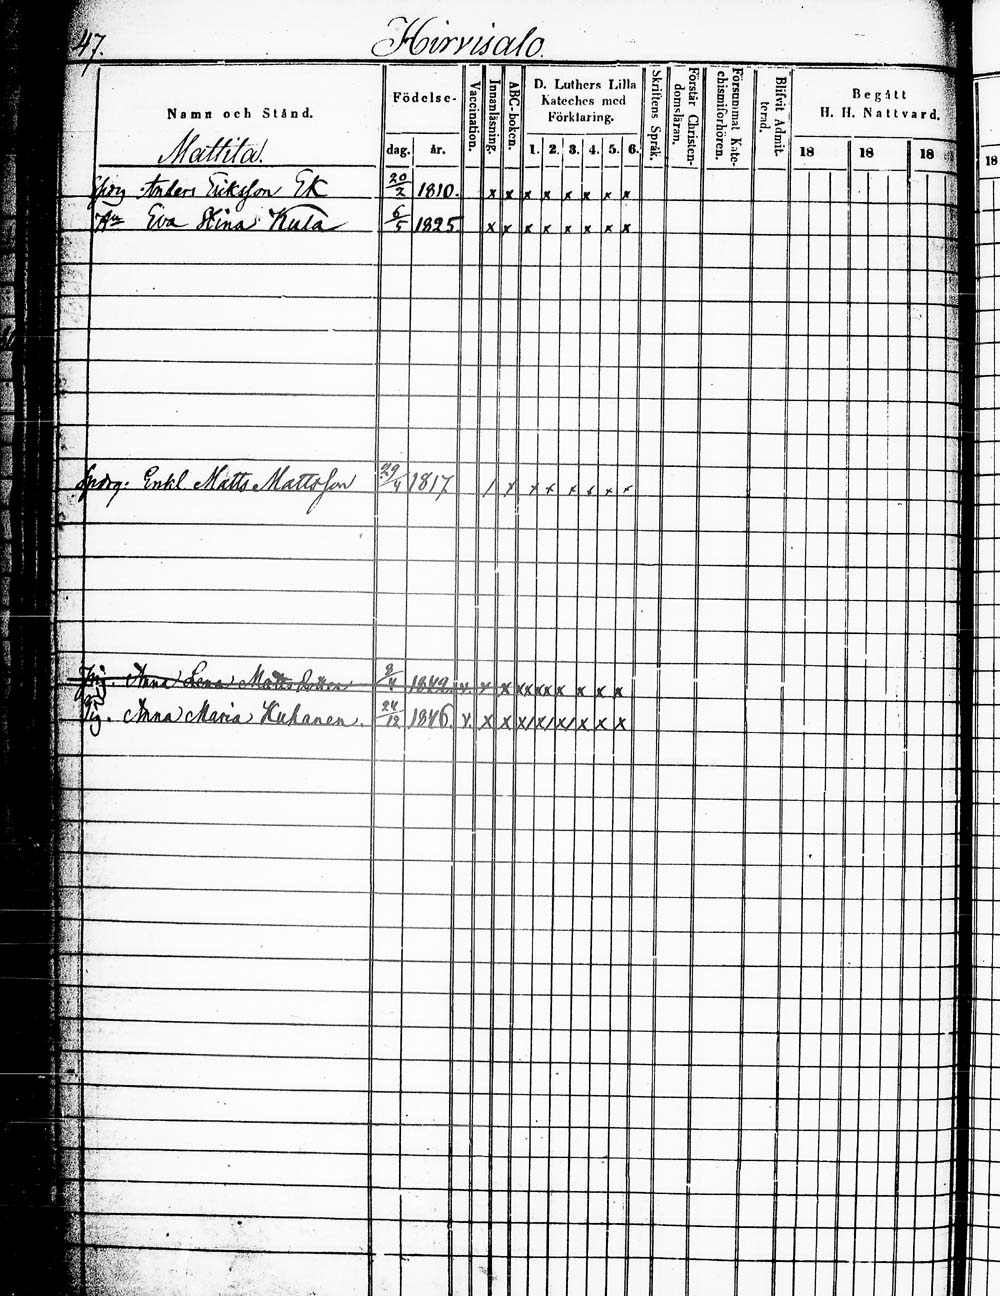 47. Hirvisalo.
Namn och Stånd. Födelse- dag. år. Vaccination. Innanläsning. ABC-boken. D. Luthers Lilla Kateches med Förklaring. 1. 2. 3. 4. 5. 6. Skriftens Språk. Förstår Christendomsläran. Försummat Katechismiförhören. Blifvit Admitterad. Begått H. H. Nattvard. 18 18 18 18
Mattila.
Anders Eriksson Ek 20/2 1810. x x x x x x x x
Hu Eva Stina Kula 6/5 1825 x x x x x x x x
Enkl Matts Mattsson 29/4 1817 / x x x x x x x
Pig. Anna Lena Matts 9/4 1842. v. x x xx xx x x x x
Pig. Anna Maria Kuhanen. 24/12 1846. v. x x x/x/x/ x x x